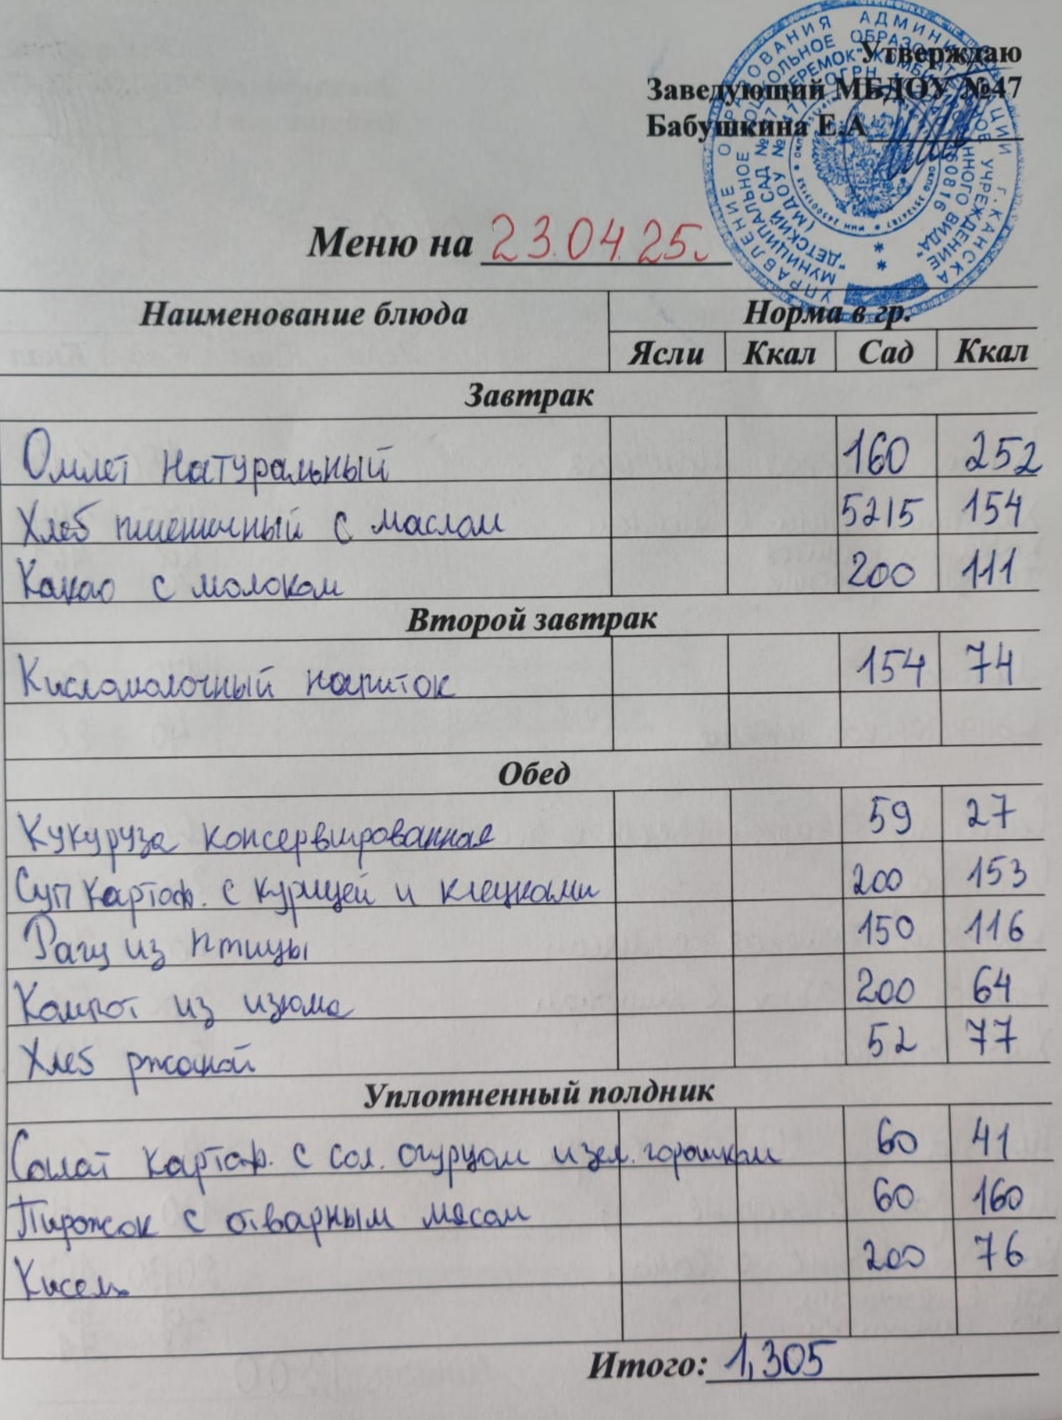 Утверждаю
Заведующий МБДОУ №47
Бабушкина Е.А
Меню на 23.04.25.
Наименование блюда Норма в гр.
Ясли Ккал Сад Ккал
Завтрак
Омлет натуральный 160 252
Хлеб пшеничный с маслом 52/5 154
Какао с молоком 200 111
Второй завтрак
Кисломолочный напиток 154 74
Обед
Кукуруза консервированная 59 27
Суп картоф. с курицей и клецками 200 153
Рагу из птицы 150 116
Компот из изюма 200 64
Хлеб ржаной 52 77
Уплотненный полдник
Салат картоф. с сол. огурцом и зел. горошком 60 41
Пирожок с отварным мясом 60 160
Кисель 200 76
Итого: 1,305
УПРАВЛЕНИЕ ОБРАЗОВАНИЯ АДМИНИСТРАЦИИ Г. КАНСКА